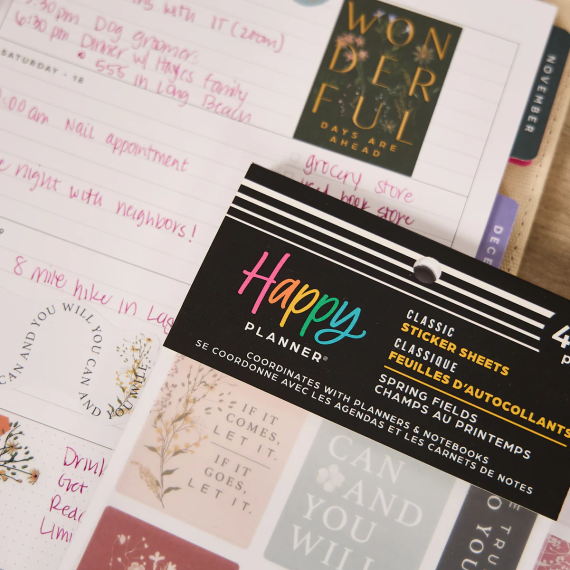 with IT (zoom)
5:30pm Dog groomer
6:30 pm Dinner w/ Hayes family
• 555 in Long Beach
SATURDAY • 18
:00am Nail appointment
night with neighbors!
8 mile hike in
WONDERFUL
DAYS ARE
AHEAD
grocery store
book store
NOVEMBER
DECE
CAN AND YOU WILL YOU CAN AND YOU WILL
Drin
Get
Rea
Limi
Happy
PLANNER®
COORDINATES WITH PLANNERS & NOTEBOOKS
SE COORDONNE AVEC LES AGENDAS ET LES CARNETS DE NOTES
CLASSIC
STICKER SHEETS
CLASSIQUE
FEUILLES D'AUTOCOLLANTS
SPRING FIELDS
CHAMPS AU PRINTEMPS
4
IF IT
COMES,
LET IT.
IF IT
GOES,
LET IT.
CAN
AND
YOU
WILL
TRU
O YOU